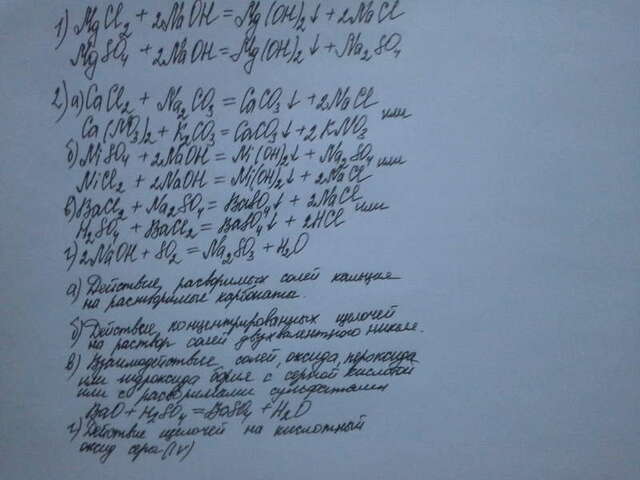 1) MgCl₂ + 2NaOH = Mg(OH)₂↓ + 2NaCl
MgSO₄ + 2NaOH = Mg(OH)₂↓ + Na₂SO₄
2) а) CaCl₂ + Na₂CO₃ = CaCO₃↓ + 2NaCl
Ca(NO₃)₂ + K₂CO₃ = CaCO₃↓ + 2KNO₃ или
б) NiSO₄ + 2NaOH = Ni(OH)₂↓ + Na₂SO₄ или
NiCl₂ + 2NaOH = Ni(OH)₂↓ + 2NaCl
в) BaCl₂ + Na₂SO₄ = BaSO₄↓ + 2NaCl
H₂SO₄ + BaCl₂ = BaSO₄↓ + 2HCl или
г) 2NaOH + SO₂ = Na₂SO₃ + H₂O
а) Действие растворимых солей кальция
на растворимые карбонаты.
б) Действие концентрированных щелочей
на раствор солей двухвалентного никеля.
в) Взаимодействие солей, оксида, пероксида
или гидроксида бария с серной кислотой
или с растворимыми сульфатами
BaO + H₂SO₄ = BaSO₄ + H₂O
г) Действие щелочей на кислотный
оксид серы (IV)